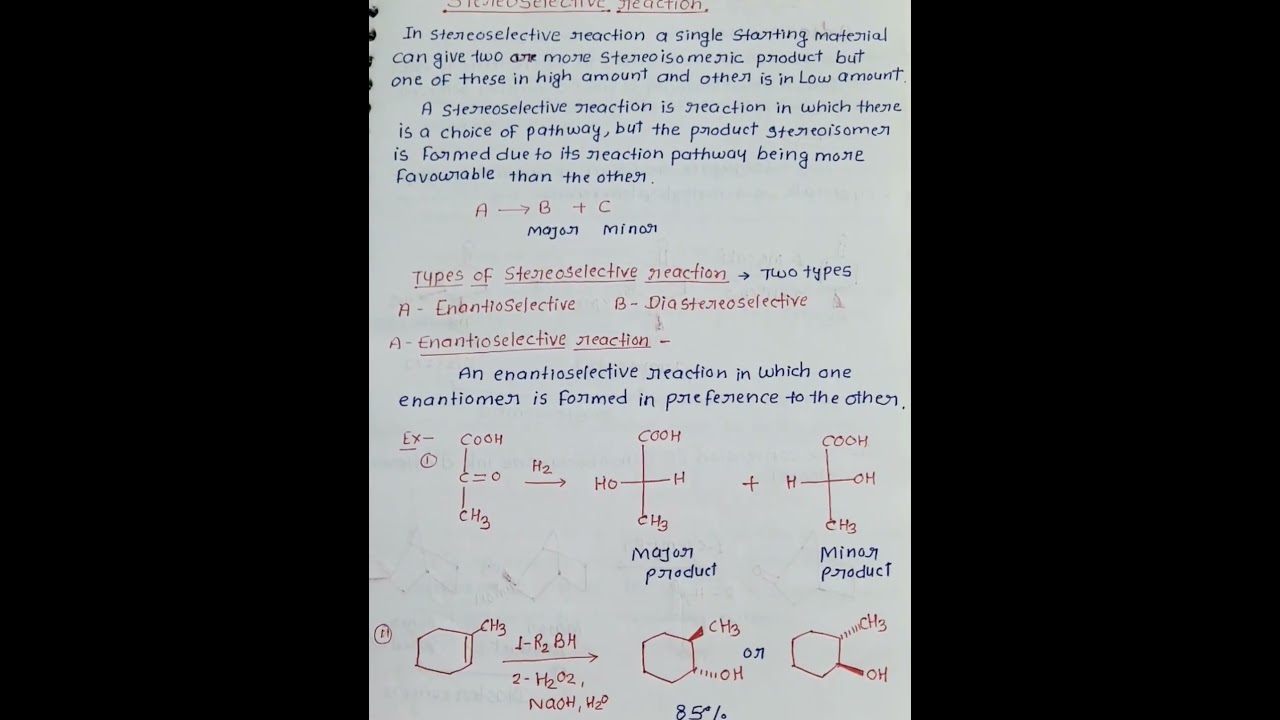 Stereoselective reaction.
In stereoselective reaction a single starting material
can give two are more stereoisomeric product but
one of these in high amount and other is in Low amount.
A stereoselective reaction is reaction in which there
is a choice of pathway, but the product stereoisomer
is formed due to its reaction pathway being more
favourable than the other.
A → B + C
Major Minor
Types of Stereoselective reaction → Two types
A - Enantioselective B - Diastereoselective
A - Enantioselective reaction -
An enantioselective reaction in which one
enantiomer is formed in preference to the other.
Ex- ① COOH COOH COOH
C=O H2 → HO H + H OH
CH3 CH3 CH3
Major Minor
product product
② CH3 1-R2BH CH3 or CH3
2-H2O2, OH OH
NaOH, H2O
85%